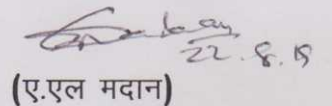 22.8.15
(ए.एल मदान)